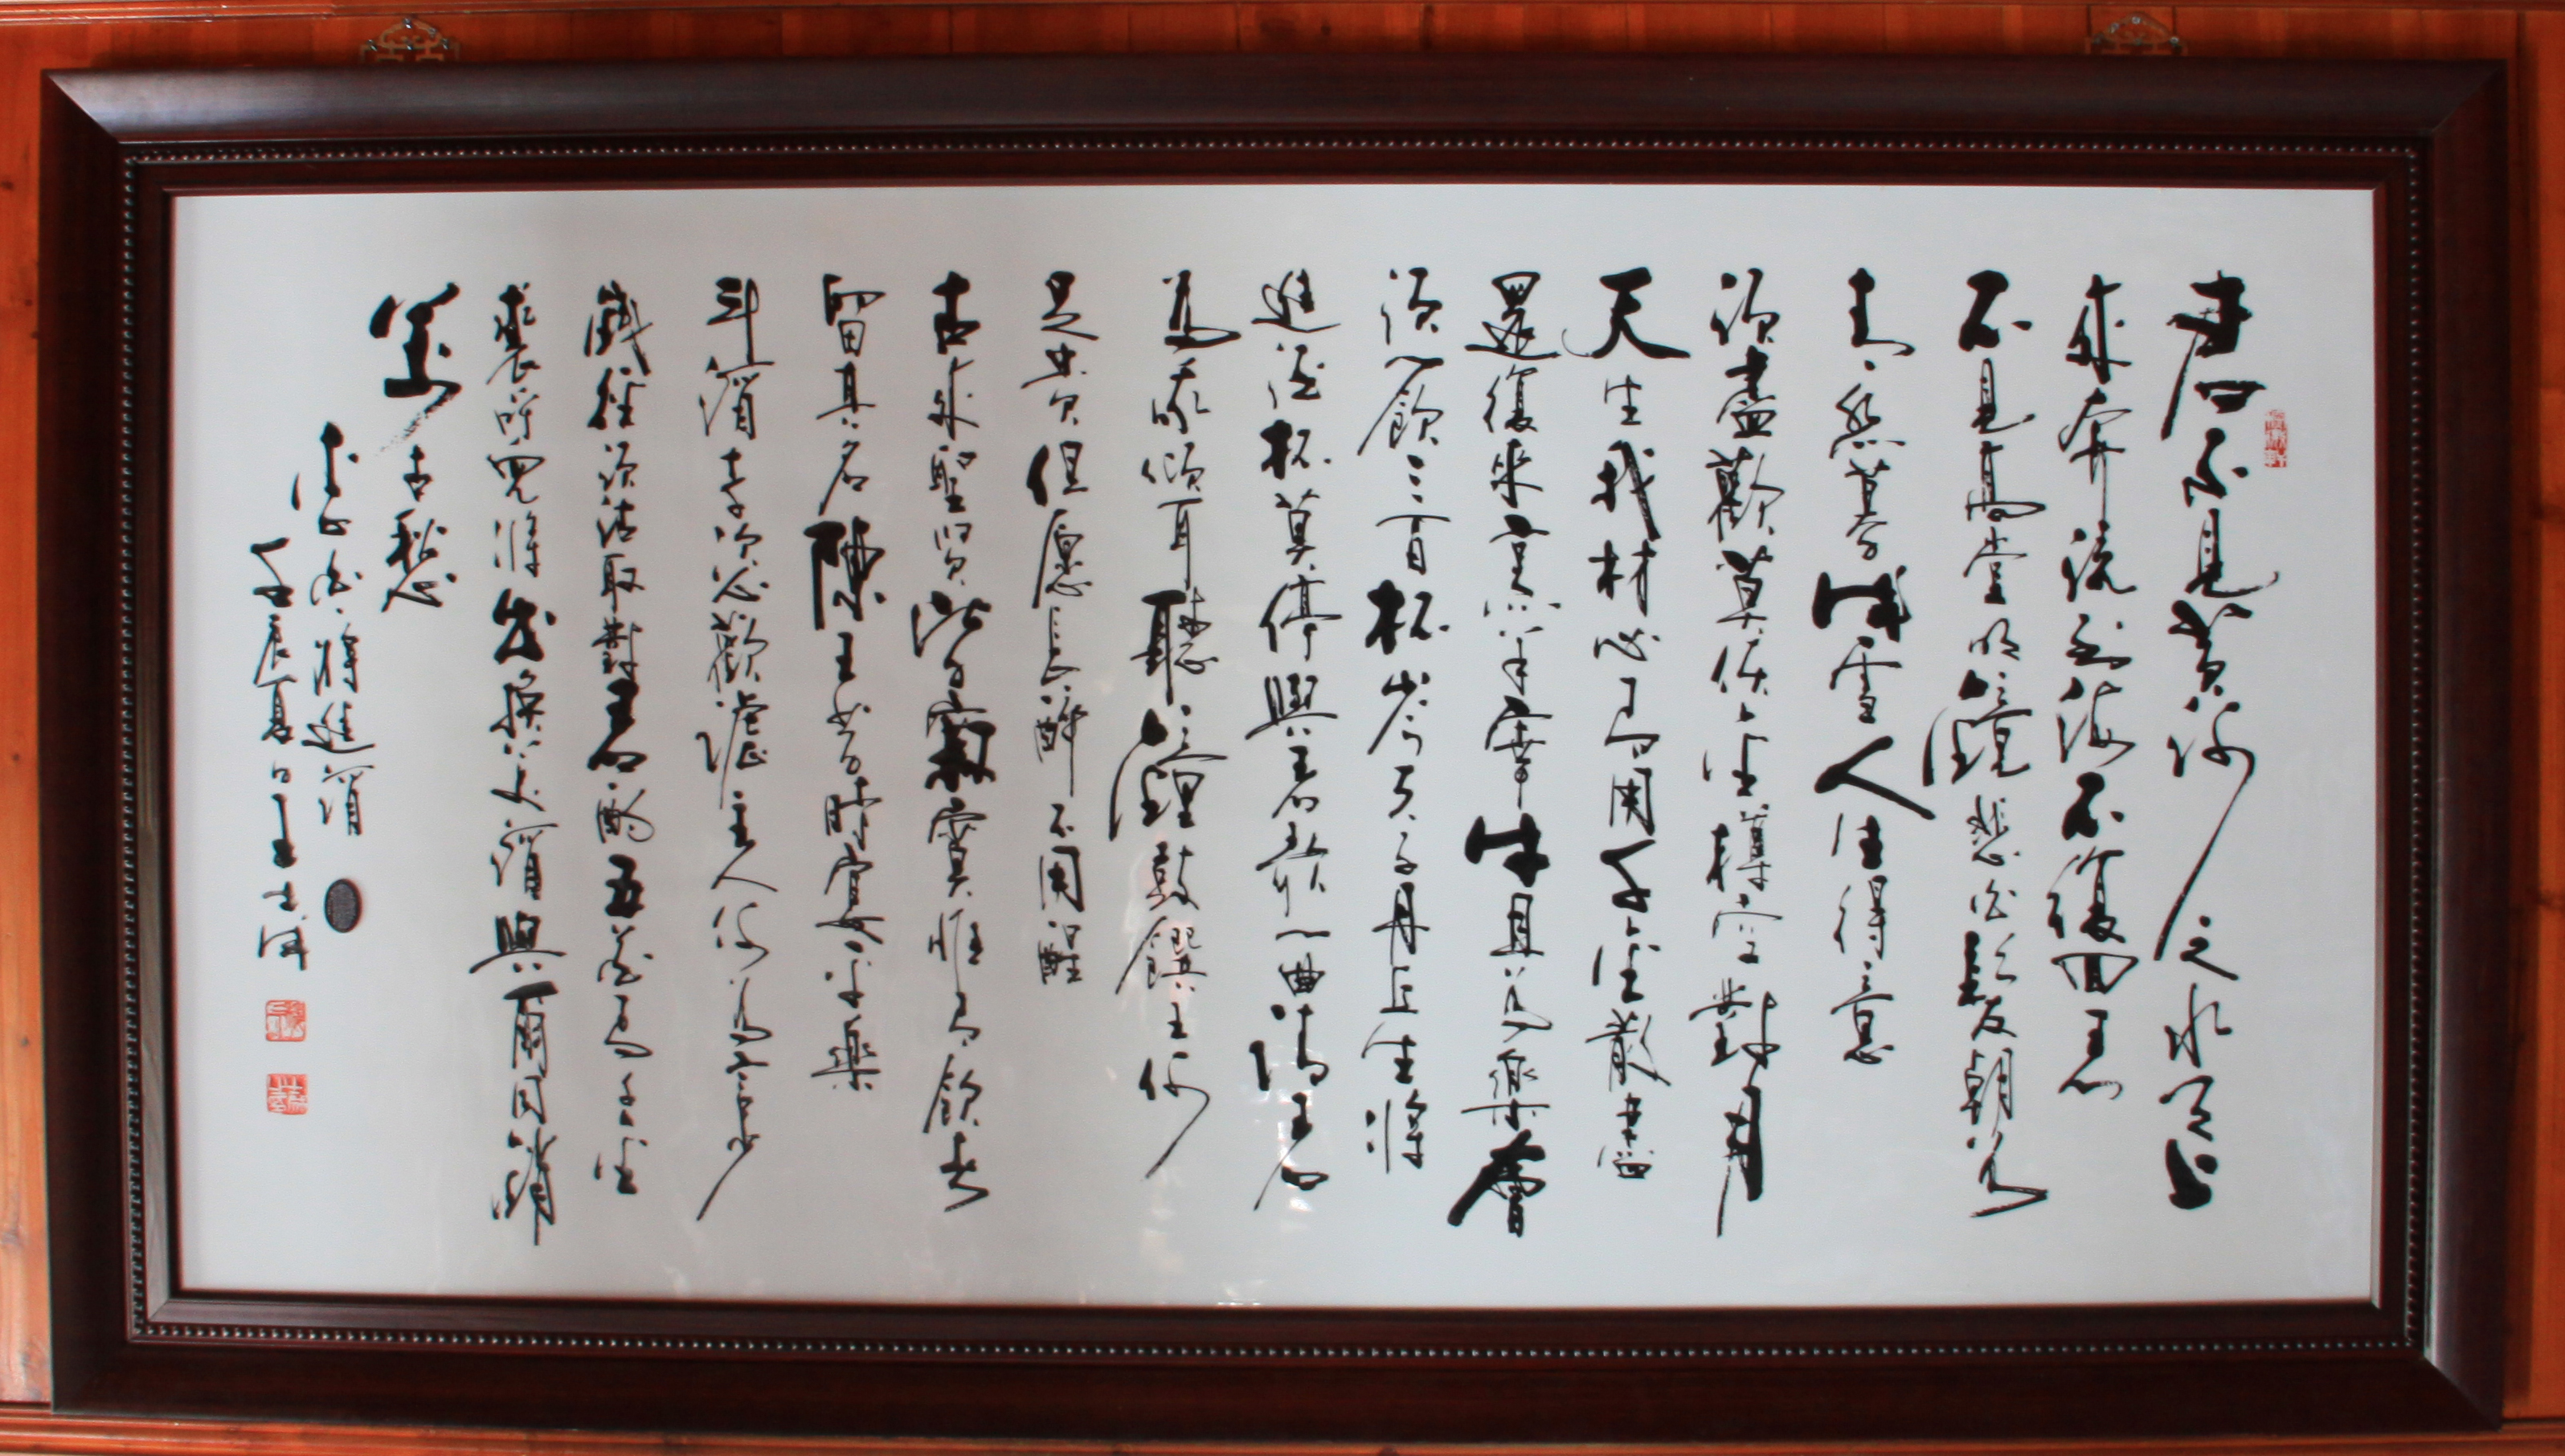 君不見黃河之水天上
來奔流到海不復回君
不見高堂明鏡悲白髮朝如
青絲暮成雪人生得意
須盡歡莫使金樽空對月
天生我材必有用千金散盡
還復來烹羊宰牛且為樂會
須一飲三百杯岑夫子丹丘生將
進酒杯莫停與君歌一曲請君
為我傾耳聽鐘鼓饌玉何
足貴但愿長醉不用醒
古來聖賢皆寂寞惟有飲者
留其名陳王昔時宴平樂
斗酒十千恣歡謔主人何為言少
錢徑須沽取對君酌五花馬千金
裘呼兒將出換美酒與爾同銷
萬古愁
李白的將進酒
壬辰夏日王